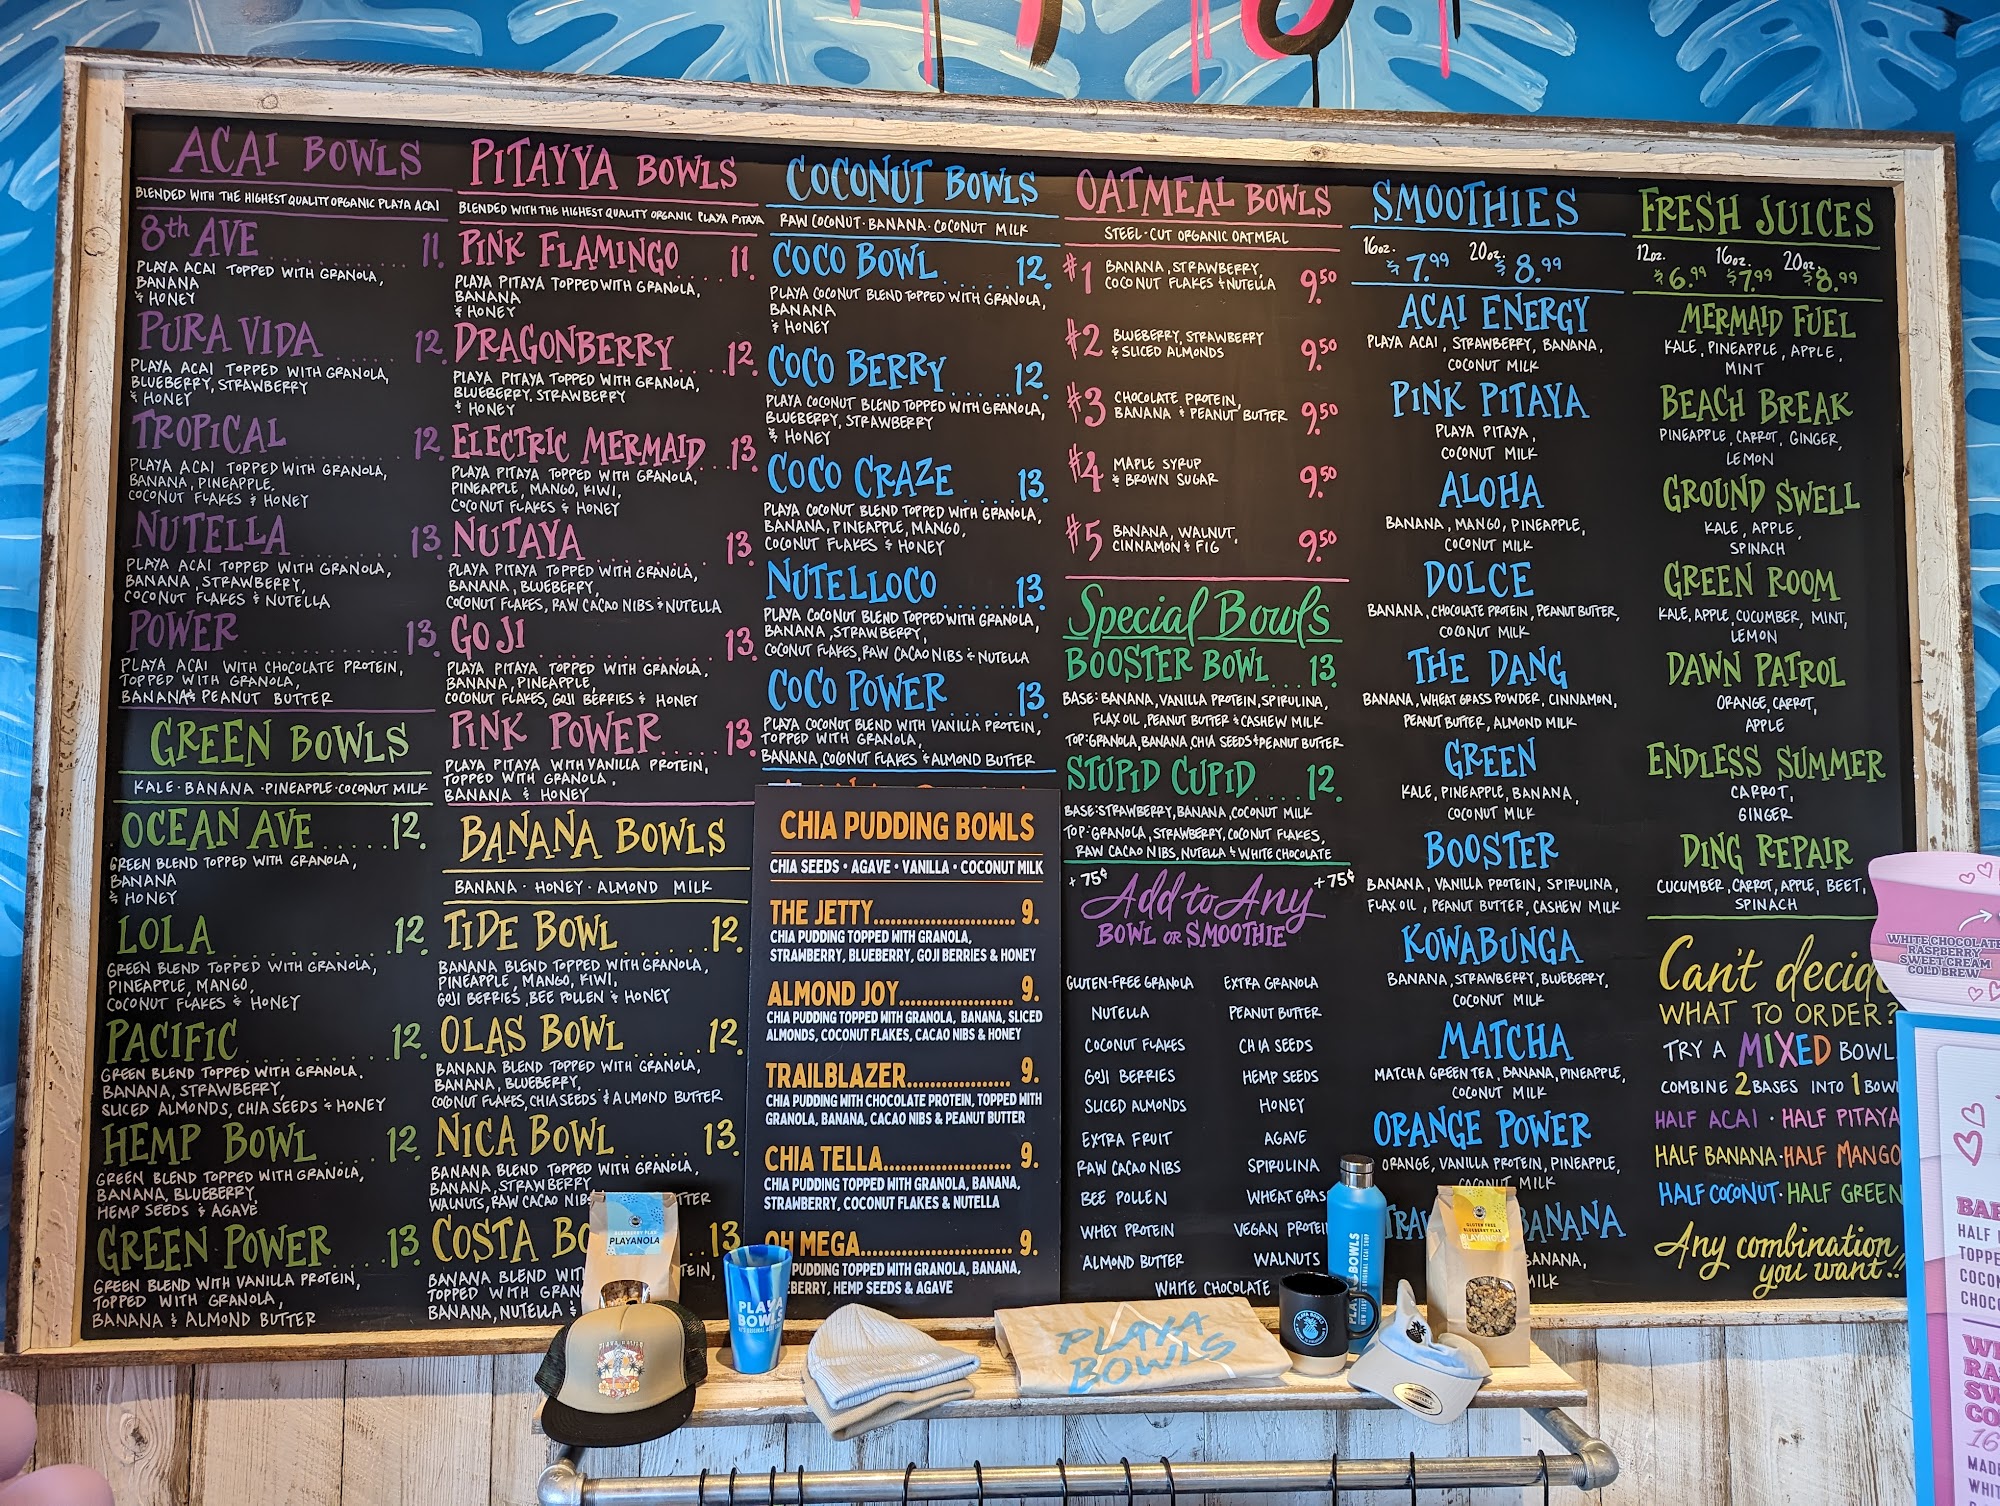 ACAI BOWLS
BLENDED WITH THE HIGHEST QUALITY ORGANIC PLAYA ACAI
8th AVE 11.
PLAYA ACAI TOPPED WITH GRANOLA,
BANANA
& HONEY
PURA VIDA 12.
PLAYA ACAI TOPPED WITH GRANOLA,
BLUEBERRY, STRAWBERRY
& HONEY
TROPICAL 12.
PLAYA ACAI TOPPED WITH GRANOLA,
BANANA, PINEAPPLE,
COCONUT FLAKES & HONEY
NUTELLA 13.
PLAYA ACAI TOPPED WITH GRANOLA,
BANANA, STRAWBERRY,
COCONUT FLAKES & NUTELLA
POWER 13.
PLAYA ACAI WITH CHOCOLATE PROTEIN,
TOPPED WITH GRANOLA,
BANANA & PEANUT BUTTER
GREEN BOWLS
KALE · BANANA · PINEAPPLE · COCONUT MILK
OCEAN AVE 12.
GREEN BLEND TOPPED WITH GRANOLA,
BANANA
& HONEY
LOLA 12.
GREEN BLEND TOPPED WITH GRANOLA,
PINEAPPLE, MANGO,
COCONUT FLAKES & HONEY
PACIFIC 12.
GREEN BLEND TOPPED WITH GRANOLA,
BANANA, STRAWBERRY,
SLICED ALMONDS, CHIA SEEDS & HONEY
HEMP BOWL 12.
GREEN BLEND TOPPED WITH GRANOLA,
BANANA, BLUEBERRY,
HEMP SEEDS & AGAVE
GREEN POWER 13.
GREEN BLEND WITH VANILLA PROTEIN,
TOPPED WITH GRANOLA,
BANANA & ALMOND BUTTER
PITAYYA BOWLS
BLENDED WITH THE HIGHEST QUALITY ORGANIC PLAYA PITAYA
PINK FLAMINGO 11.
PLAYA PITAYA TOPPED WITH GRANOLA,
BANANA
& HONEY
DRAGONBERRY 12.
PLAYA PITAYA TOPPED WITH GRANOLA,
BLUEBERRY, STRAWBERRY
& HONEY
ELECTRIC MERMAID 13.
PLAYA PITAYA TOPPED WITH GRANOLA,
PINEAPPLE, MANGO, KIWI,
COCONUT FLAKES & HONEY
NUTAYA 13.
PLAYA PITAYA TOPPED WITH GRANOLA,
BANANA, BLUEBERRY,
COCONUT FLAKES, RAW CACAO NIBS & NUTELLA
GOJI 13.
PLAYA PITAYA TOPPED WITH GRANOLA,
BANANA, PINEAPPLE,
COCONUT FLAKES, GOJI BERRIES & HONEY
PINK POWER 13.
PLAYA PITAYA WITH VANILLA PROTEIN,
TOPPED WITH GRANOLA,
BANANA & HONEY
BANANA BOWLS
BANANA · HONEY · ALMOND MILK
TIDE BOWL 12.
BANANA BLEND TOPPED WITH GRANOLA,
PINEAPPLE, MANGO, KIWI,
GOJI BERRIES, BEE POLLEN & HONEY
OLAS BOWL 12.
BANANA BLEND TOPPED WITH GRANOLA,
BANANA, BLUEBERRY,
COCONUT FLAKES, CHIA SEEDS & ALMOND BUTTER
NICA BOWL 13.
BANANA BLEND TOPPED WITH GRANOLA,
BANANA, STRAWBERRY
WALNUTS, RAW CACAO NIBS
COSTA BO 13
BANANA BLEND WIT TEIN,
TOPPED WITH GRAN
BANANA, NUTELLA &
COCONUT BOWLS
RAW COCONUT · BANANA · COCONUT MILK
COCO BOWL 12.
PLAYA COCONUT BLEND TOPPED WITH GRANOLA,
BANANA
& HONEY
COCO BERRY 12.
PLAYA COCONUT BLEND TOPPED WITH GRANOLA,
BLUEBERRY, STRAWBERRY
& HONEY
COCO CRAZE 13.
PLAYA COCONUT BLEND TOPPED WITH GRANOLA,
BANANA, PINEAPPLE, MANGO,
COCONUT FLAKES & HONEY
NUTELLOCO 13.
PLAYA COCONUT BLEND TOPPED WITH GRANOLA,
BANANA, STRAWBERRY,
COCONUT FLAKES, RAW CACAO NIBS & NUTELLA
COCO POWER 13.
PLAYA COCONUT BLEND WITH VANILLA PROTEIN,
TOPPED WITH GRANOLA,
BANANA, COCONUT FLAKES & ALMOND BUTTER
CHIA PUDDING BOWLS
CHIA SEEDS • AGAVE • VANILLA • COCONUT MILK
THE JETTY 9.
CHIA PUDDING TOPPED WITH GRANOLA,
STRAWBERRY, BLUEBERRY, GOJI BERRIES & HONEY
ALMOND JOY 9.
CHIA PUDDING TOPPED WITH GRANOLA, BANANA, SLICED
ALMONDS, COCONUT FLAKES, CACAO NIBS & HONEY
TRAILBLAZER 9.
CHIA PUDDING WITH CHOCOLATE PROTEIN, TOPPED WITH
GRANOLA, BANANA, CACAO NIBS & PEANUT BUTTER
CHIA TELLA 9.
CHIA PUDDING TOPPED WITH GRANOLA, BANANA,
STRAWBERRY, COCONUT FLAKES & NUTELLA
OH MEGA 9.
PUDDING TOPPED WITH GRANOLA, BANANA,
EBERRY, HEMP SEEDS & AGAVE
OATMEAL BOWLS
STEEL-CUT ORGANIC OATMEAL
#1 BANANA, STRAWBERRY, 9.50
COCONUT FLAKES & NUTELLA
#2 BLUEBERRY, STRAWBERRY 9.50
& SLICED ALMONDS
#3 CHOCOLATE PROTEIN, 9.50
BANANA & PEANUT BUTTER
#4 MAPLE SYRUP 9.50
& BROWN SUGAR
#5 BANANA, WALNUT, 9.50
CINNAMON & FIG
Special Bowls
BOOSTER BOWL 13.
BASE: BANANA, VANILLA PROTEIN, SPIRULINA,
FLAX OIL, PEANUT BUTTER & CASHEW MILK
TOP: GRANOLA, BANANA, CHIA SEEDS & PEANUT BUTTER
STUPID CUPID 12.
BASE: STRAWBERRY, BANANA, COCONUT MILK
TOP: GRANOLA, STRAWBERRY, COCONUT FLAKES,
RAW CACAO NIBS, NUTELLA & WHITE CHOCOLATE
+75¢ Add to Any +75¢
BOWL OR SMOOTHIE
GLUTEN-FREE GRANOLA EXTRA GRANOLA
NUTELLA PEANUT BUTTER
COCONUT FLAKES CHIA SEEDS
GOJI BERRIES HEMP SEEDS
SLICED ALMONDS HONEY
EXTRA FRUIT AGAVE
RAW CACAO NIBS SPIRULINA
BEE POLLEN WHEAT GRAS
WHEY PROTEIN VEGAN PROTEI
ALMOND BUTTER WALNUTS
WHITE CHOCOLATE
SMOOTHIES
16oz. $7.99 20oz. $8.99
ACAI ENERGY
PLAYA ACAI, STRAWBERRY, BANANA,
COCONUT MILK
PINK PITAYA
PLAYA PITAYA,
COCONUT MILK
ALOHA
BANANA, MANGO, PINEAPPLE,
COCONUT MILK
DOLCE
BANANA, CHOCOLATE PROTEIN, PEANUT BUTTER,
COCONUT MILK
THE DANG
BANANA, WHEAT GRASS POWDER, CINNAMON,
PEANUT BUTTER, ALMOND MILK
GREEN
KALE, PINEAPPLE, BANANA,
COCONUT MILK
BOOSTER
BANANA, VANILLA PROTEIN, SPIRULINA,
FLAX OIL, PEANUT BUTTER, CASHEW MILK
KOWABUNGA
BANANA, STRAWBERRY, BLUEBERRY,
COCONUT MILK
MATCHA
MATCHA GREEN TEA, BANANA, PINEAPPLE,
COCONUT MILK
ORANGE POWER
ORANGE, VANILLA PROTEIN, PINEAPPLE,
COCONUT MILK
BANANA
BANANA,
MILK
FRESH JUICES
12oz. $6.99 16oz. $7.99 20oz. $8.99
MERMAID FUEL
KALE, PINEAPPLE, APPLE,
MINT
BEACH BREAK
PINEAPPLE, CARROT, GINGER,
LEMON
GROUND SWELL
KALE, APPLE,
SPINACH
GREEN ROOM
KALE, APPLE, CUCUMBER, MINT,
LEMON
DAWN PATROL
ORANGE, CARROT,
APPLE
ENDLESS SUMMER
CARROT,
GINGER
DING REPAIR
CUCUMBER, CARROT, APPLE, BEET,
SPINACH
Can't decide
WHAT TO ORDER?
TRY A MIXED BOWL
COMBINE 2 BASES INTO 1 BOWL
HALF ACAI · HALF PITAYA
HALF BANANA · HALF MANGO
HALF COCONUT · HALF GREEN
Any combination
you want..!!
WHITE CHOCOLATE
RASPBERRY
SWEET CREAM
COLD BREW
HALF
TOPPE
COCON
CHOC
16
MADE
WHIT
PLAYANOLA
PLAYA
BOWLS
PLAYA
BOWLS
PLAYA BOWLS
GLUTEN FREE
BLUEBERRY FLAX
PLAYANOLA